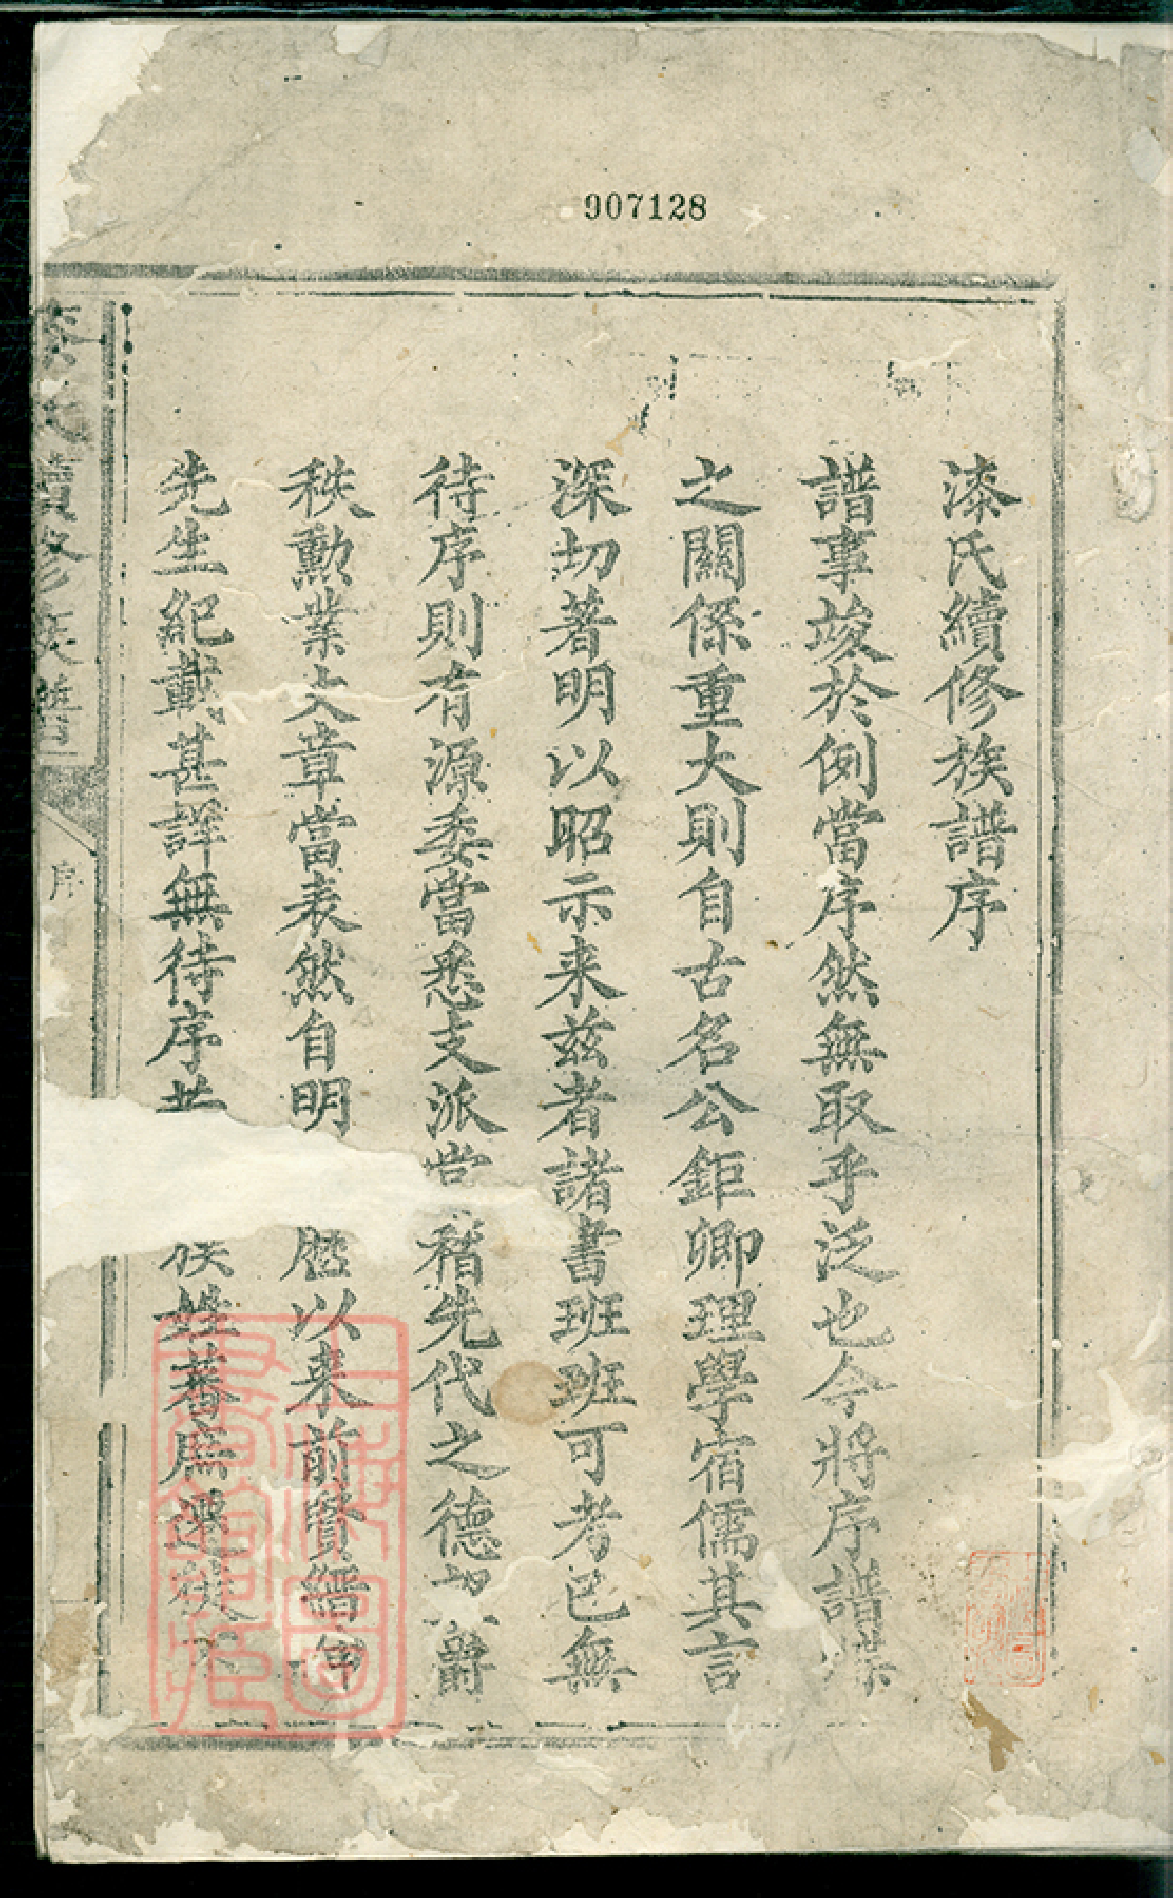 907128
漆氏續修族譜序
譜事竣於例當序然無取乎泛也今將序譜
之關係重大則自古名公鉅卿理學宿儒其言
深切著明以昭示来兹者諸書班班可考已無
待序則有源委當悉支派當稽先代之德爵
秩勳業文章當表然自明以来前賢
先生紀載甚詳無待序族姓蕃庶遷徙
續修族譜
序